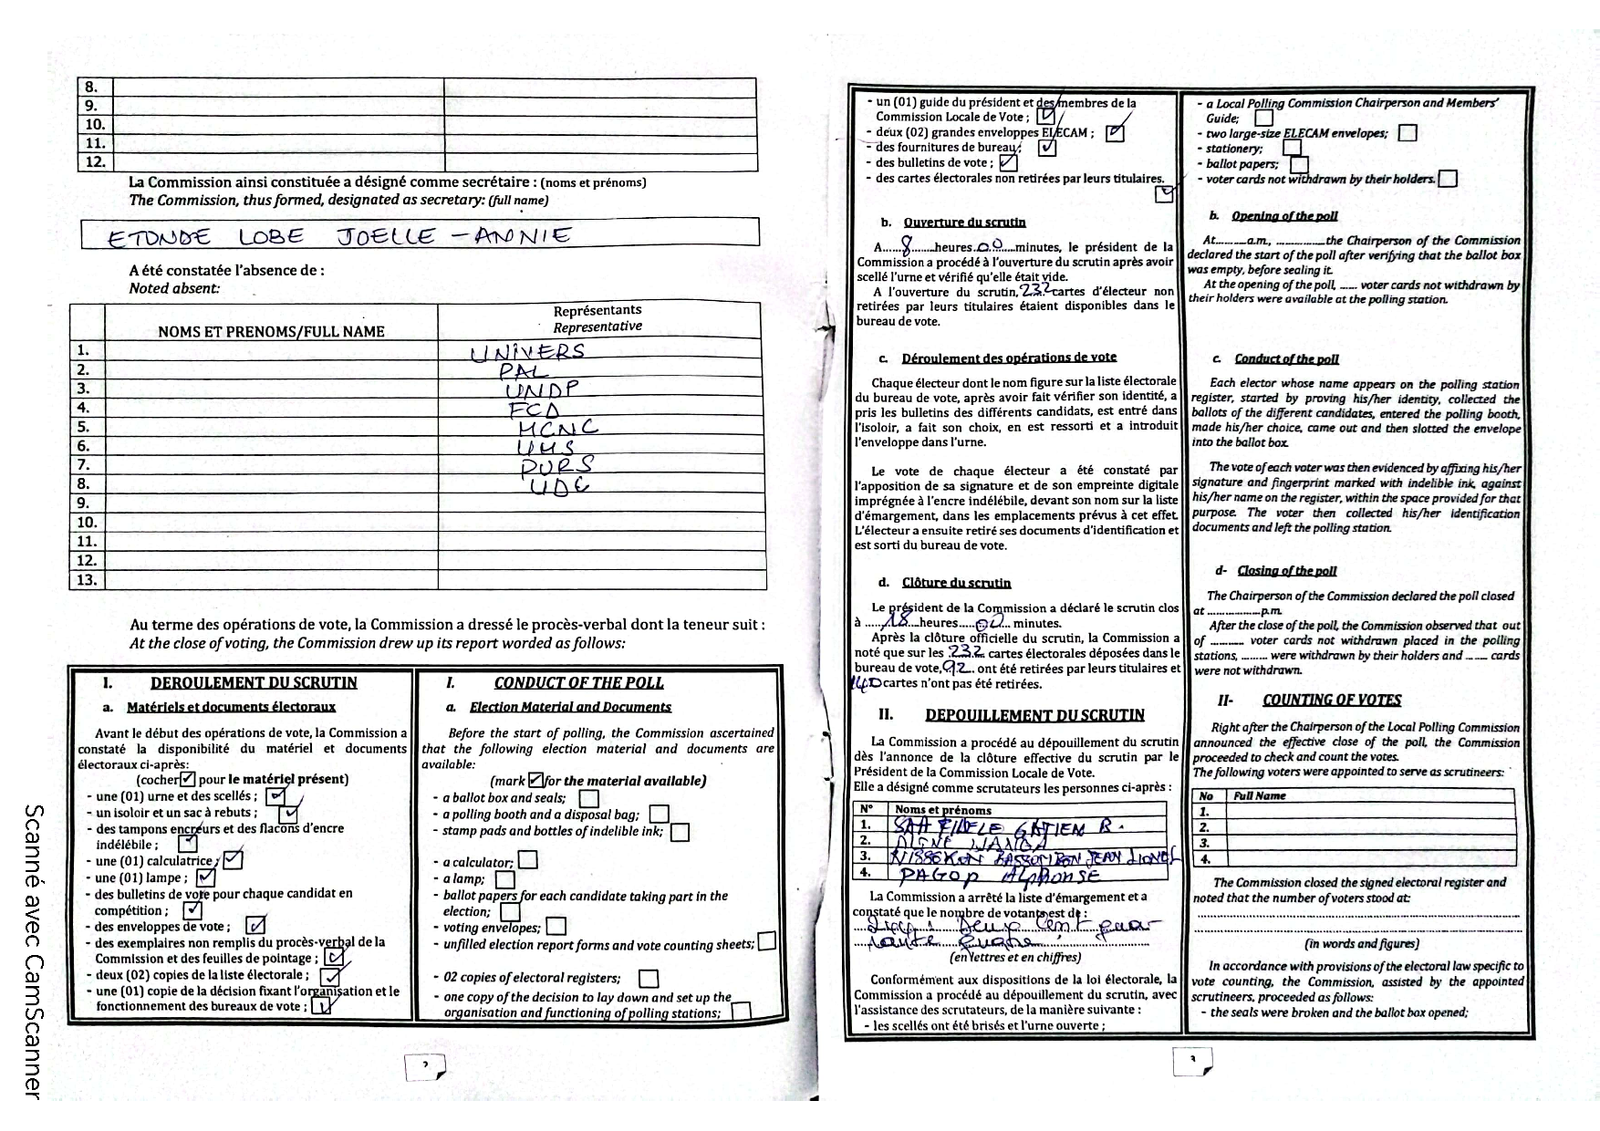 8.
9.
10.
11.
12.
La Commission ainsi constituée a désigné comme secrétaire : (noms et prénoms)
The Commission, thus formed, designated as secretary: (full name)
ETONDE LOBE JOELLE - ANNIE
A été constatée l'absence de :
Noted absent:
NOMS ET PRENOMS/FULL NAME
Représentants
Representative
1. UNIVERS
2. PAL
3. UNDP
4. FCD
5. MCNC
6. UMS
7. PURS
8. UDC
9.
10.
11.
12.
13.
Au terme des opérations de vote, la Commission a dressé le procès-verbal dont la teneur suit :
At the close of voting, the Commission drew up its report worded as follows:
I. DEROULEMENT DU SCRUTIN
a. Matériels et documents électoraux
Avant le début des opérations de vote, la Commission a
constaté la disponibilité du matériel et documents
électoraux ci-après:
(cocher pour le matériel présent)
- une (01) urne et des scellés ;
- un isoloir et un sac à rebuts ;
- des tampons encreurs et des flacons d'encre
indélébile ;
- une (01) calculatrice ;
- une (01) lampe ;
- des bulletins de vote pour chaque candidat en
compétition ;
- des enveloppes de vote ;
- des exemplaires non remplis du procès-verbal de la
Commission et des feuilles de pointage ;
- deux (02) copies de la liste électorale ;
- une (01) copie de la décision fixant l'organisation et le
fonctionnement des bureaux de vote ;
I. CONDUCT OF THE POLL
a. Election Material and Documents
Before the start of polling, the Commission ascertained
that the following election material and documents are
available:
(mark for the material available)
- a ballot box and seals;
- a polling booth and a disposal bag;
- stamp pads and bottles of indelible ink;
- a calculator;
- a lamp;
- ballot papers for each candidate taking part in the
election;
- voting envelopes;
- unfilled election report forms and vote counting sheets;
- 02 copies of electoral registers;
- one copy of the decision to lay down and set up the
organisation and functioning of polling stations;
2
Scanné avec CamScanner
- un (01) guide du président et des membres de la
Commission Locale de Vote ;
- deux (02) grandes enveloppes ELECAM ;
- des fournitures de bureau;
- des bulletins de vote ;
- des cartes électorales non retirées par leurs titulaires.
b. Ouverture du scrutin
A....8....heures.00...minutes, le président de la
Commission a procédé à l'ouverture du scrutin après avoir
scellé l'urne et vérifié qu'elle était vide.
A l'ouverture du scrutin, 232 cartes d'électeur non
retirées par leurs titulaires étaient disponibles dans le
bureau de vote.
c. Déroulement des opérations de vote
Chaque électeur dont le nom figure sur la liste électorale
du bureau de vote, après avoir fait vérifier son identité, a
pris les bulletins des différents candidats, est entré dans
l'isoloir, a fait son choix, en est ressorti et a introduit
l'enveloppe dans l'urne.
Le vote de chaque électeur a été constaté par
l'apposition de sa signature et de son empreinte digitale
imprégnée à l'encre indélébile, devant son nom sur la liste
d'émargement, dans les emplacements prévus à cet effet.
L'électeur a ensuite retiré ses documents d'identification et
est sorti du bureau de vote.
d. Clôture du scrutin
Le président de la Commission a déclaré le scrutin clos
à .....18....heures.....00.... minutes.
Après la clôture officielle du scrutin, la Commission a
noté que sur les 232 cartes électorales déposées dans le
bureau de vote, 92 ont été retirées par leurs titulaires et
140 cartes n'ont pas été retirées.
II. DEPOUILLEMENT DU SCRUTIN
La Commission a procédé au dépouillement du scrutin
dès l'annonce de la clôture effective du scrutin par le
Président de la Commission Locale de Vote.
Elle a désigné comme scrutateurs les personnes ci-après :
N° Noms et prénoms
1. SAH FIDELE GATIEN R.
2.
3. JEAN LIONEL
4. PAGOP ALPHONSE
La Commission a arrêté la liste d'émargement et a
constaté que le nombre de votants est de :
Deux Cent quar
rante quatre
(en lettres et en chiffres)
Conformément aux dispositions de la loi électorale, la
Commission a procédé au dépouillement du scrutin, avec
l'assistance des scrutateurs, de la manière suivante :
- les scellés ont été brisés et l'urne ouverte ;
- a Local Polling Commission Chairperson and Members'
Guide;
- two large-size ELECAM envelopes;
- stationery;
- ballot papers;
- voter cards not withdrawn by their holders.
b. Opening of the poll
At.........a.m., ..............the Chairperson of the Commission
declared the start of the poll after verifying that the ballot box
was empty, before sealing it.
At the opening of the poll, ...... voter cards not withdrawn by
their holders were available at the polling station.
c. Conduct of the poll
Each elector whose name appears on the polling station
register, started by proving his/her identity, collected the
ballots of the different candidates, entered the polling booth,
made his/her choice, came out and then slotted the envelope
into the ballot box.
The vote of each voter was then evidenced by affixing his/her
signature and fingerprint marked with indelible ink, against
his/her name on the register, within the space provided for that
purpose. The voter then collected his/her identification
documents and left the polling station.
d- Closing of the poll
The Chairperson of the Commission declared the poll closed
at .................p.m.
After the close of the poll, the Commission observed that out
of .......... voter cards not withdrawn placed in the polling
stations, ......... were withdrawn by their holders and ....... cards
were not withdrawn.
II- COUNTING OF VOTES
Right after the Chairperson of the Local Polling Commission
announced the effective close of the poll, the Commission
proceeded to check and count the votes.
The following voters were appointed to serve as scrutineers:
No Full Name
1.
2.
3.
4.
The Commission closed the signed electoral register and
noted that the number of voters stood at:
(in words and figures)
In accordance with provisions of the electoral law specific to
vote counting, the Commission, assisted by the appointed
scrutineers, proceeded as follows:
- the seals were broken and the ballot box opened;
3